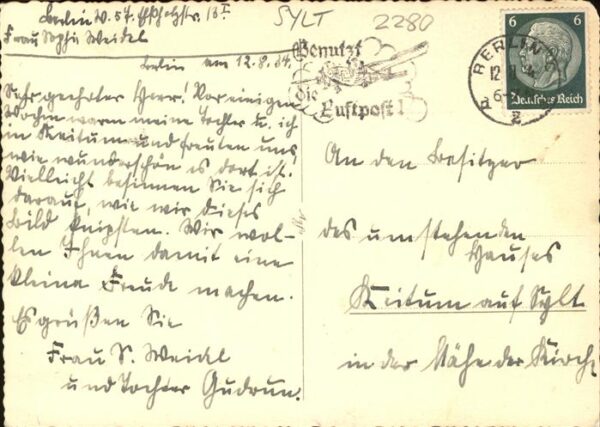 Berlin W. 57. Elßholzstr. 16 I
Frau Sophie Weidel
SYLT 2280
Benutzt
die
Luftpost!
BERLIN
12.8.34
2
6
6
Deutsches Reich
Berlin am 12.8.34.
Sehr geehrter Herr! Vor einigen
Wochen waren meine Tochter u. ich
in Keitum und freuten uns,
wie wunderschön es dort ist.
Vielleicht besinnen Sie sich
darauf, wie wir dieses
Bild knipsten. Wir wol-
len Ihnen damit eine
kleine Freude machen.
Es grüßen Sie
Frau S. Weidel
und Tochter Gudrun.
An den Besitzer
des umstehenden
Hauses
Keitum auf Sylt
in der Nähe der Kirche